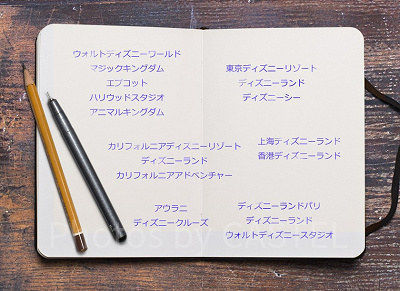 ウォルトディズニーワールド
マジックキングダム
エプコット
ハリウッドスタジオ
アニマルキングダム
東京ディズニーリゾート
ディズニーランド
ディズニーシー
カリフォルニアディズニーリゾート
ディズニーランド
カリフォルニアアドベンチャー
上海ディズニーランド
香港ディズニーランド
アウラニ
ディズニークルーズ
ディズニーランドパリ
ディズニーランド
ウォルトディズニースタジオ
Photos by